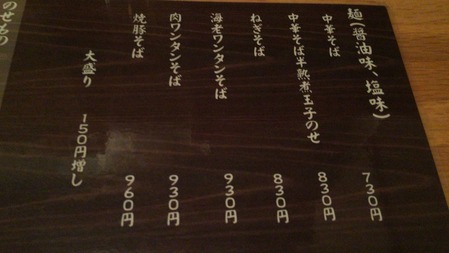 麺(醤油味、塩味)
中華そば 730円
中華そば半熟煮玉子のせ 830円
ねぎそば 830円
海老ワンタンそば 930円
肉ワンタンそば 930円
焼豚そば 960円
大盛り 150円増し
のせもの